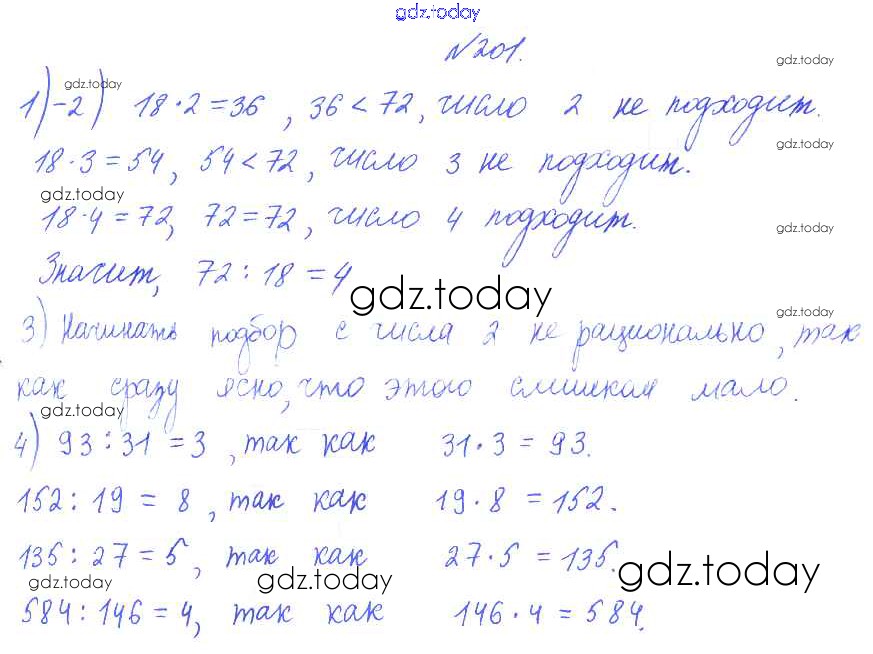 gdz.today
№201.
gdz.today
gdz.today
1)-2) 18·2=36, 36<72, число 2 не подходит.
gdz.today
18·3=54, 54<72, число 3 не подходит.
gdz.today
18·4=72, 72=72, число 4 подходит.
gdz.today
Значит, 72:18=4
gdz.today
gdz.today
3) Начинать подбор с числа 2 не рационально, так
как сразу ясно, что этого слишком мало.
gdz.today
gdz.today
4) 93:31=3, так как 31·3=93.
152:19=8, так как 19·8=152.
135:27=5, так как 27·5=135.
gdz.today
gdz.today
gdz.today
584:146=4, так как 146·4=584.